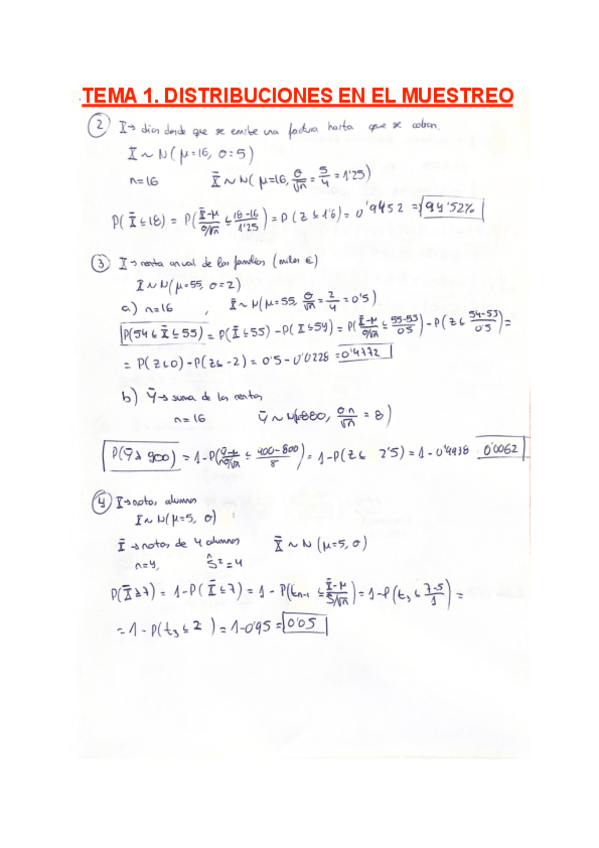 TEMA 1. DISTRIBUCIONES EN EL MUESTREO
② X → días desde que se emite una factura hasta que se cobra.
X ~ N(μ=16, σ=5)
n=16 X̄ ~ N(μ=16, σ/√n = 5/4 = 1'25)
P(X̄ ≤ 18) = P(X̄-μ/σ/√n ≤ 18-16/1'25) = P(Z ≤ 1'6) = 0'9452 = 94'52%
③ X → renta anual de las familias (miles €)
X ~ N(μ=55, σ=2)
a) n=16, X̄ ~ N(μ=55, σ/√n = 2/4 = 0'5)
P(54 ≤ X̄ ≤ 55) = P(X̄ ≤ 55) - P(X̄ ≤ 54) = P(X̄-μ/σ/√n ≤ 55-55/0'5) - P(Z ≤ 54-55/0'5) =
= P(Z ≤ 0) - P(Z ≤ -2) = 0'5 - 0'0228 = 0'4772
b) Ȳ → suma de las rentas
n=16 Ȳ ~ N(μ=880, σn/√n = 8)
P(Ȳ ≥ 900) = 1-P( ≤ /8) = 1-P(Z ≤ 2'5) = 1-0'9938 0'0062
④ X → notas alumnos
X ~ N(μ=5, σ)
X̄ → notas de 4 alumnos X̄ ~ N(μ=5, σ)
n=4, S²=4
P(X̄ ≥ 7) = 1-P(X̄ ≤ 7) = 1-P(tn-1 ≤ X̄-μ/S/√n) = 1-P(t₃ ≤ 7-5/1) =
= 1-P(t₃ ≤ 2) = 1-0'95 = 0'05